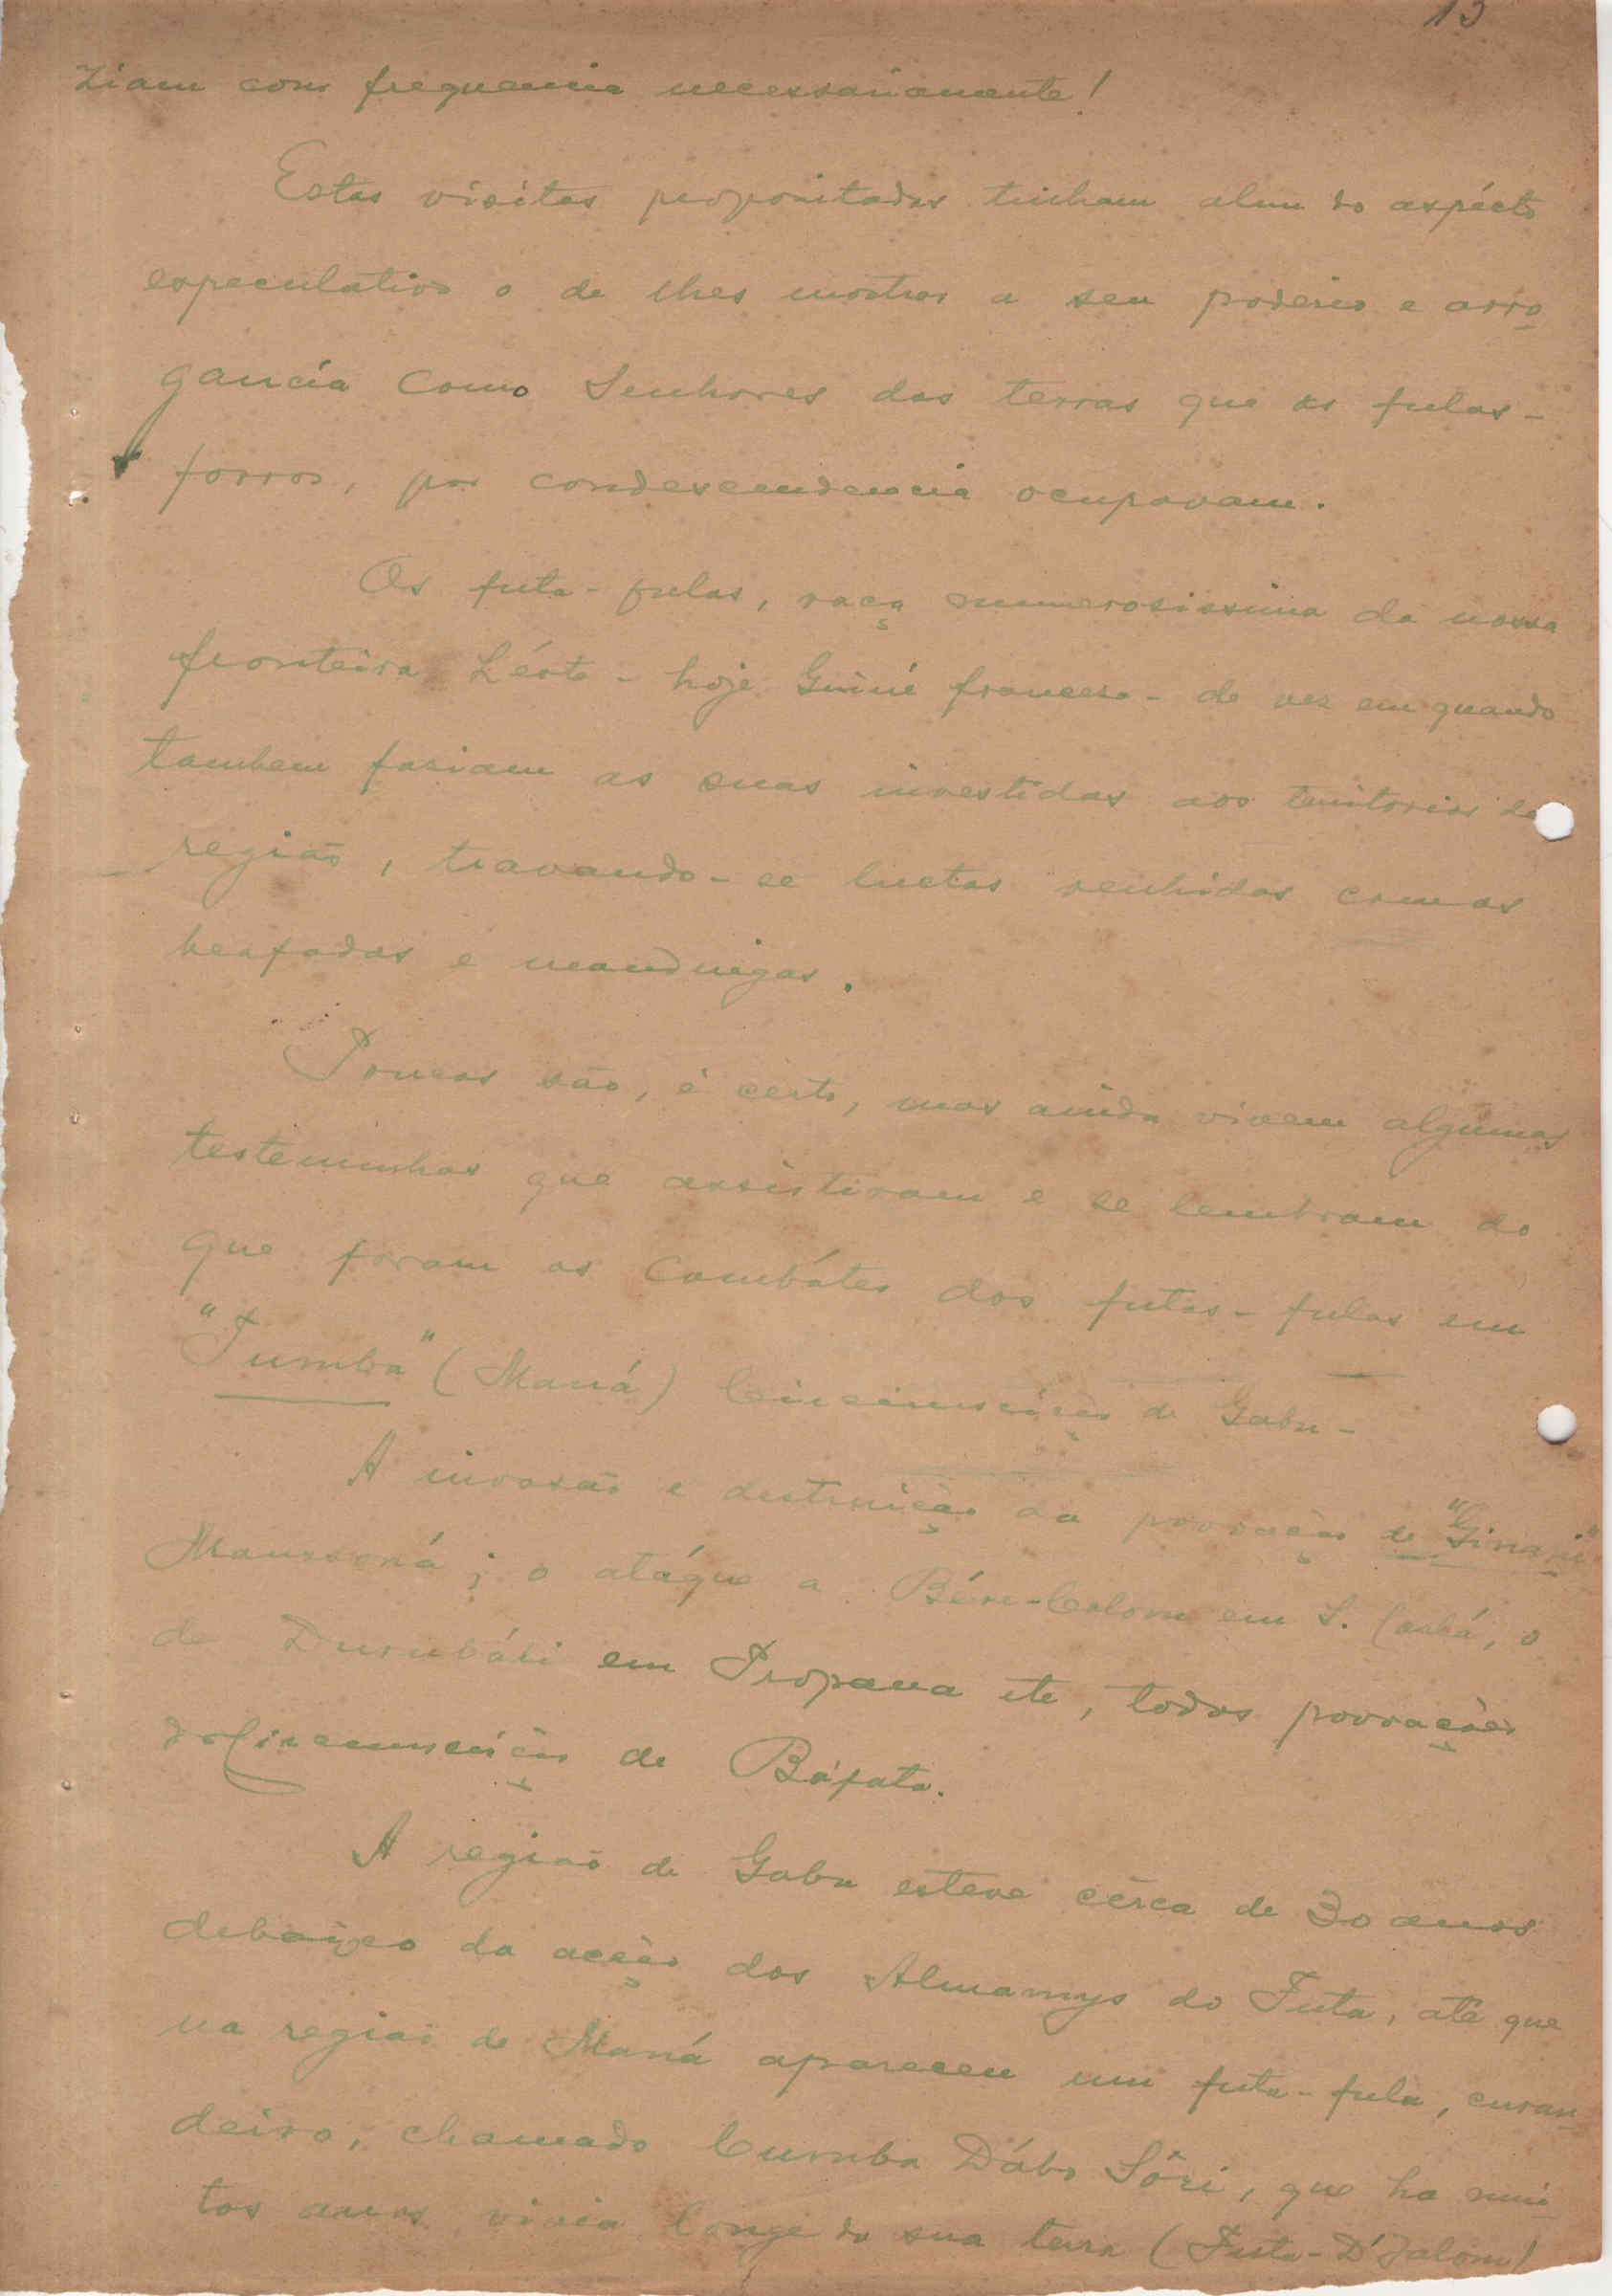 13
ziam com frequencia necessariamente!
Estas visitas propositadas tinham alem do aspécto
especulativo o de lhes mostrar o seu poderio e arro
gancia como Senhores das terras que os fulas-
forros, por condescendencia ocupavam.
Os futa-fulas, raça numerosissima da nossa
fronteira Léste - hoje Guiné francesa - de vez em quando
tambem faziam as suas investidas aos territorios da
região, travando-se luctas renhidas com os
beafadas e mandingas.
Poucas são, é certo, mas ainda vivem algumas
testeminhas que assistiram e se lembram do
que foram os combátes dos futas-fulas em
"Tumba" (Maná) Circumscrição de Gabu-
A invasão e destruição da povoação de "Ginani"
Manssoná; o atáque a Bére-Colom em S. Corlá, o
de Durubáli em Propana etc, todas povoações
da Circumscrição de Báfata.
A região de Gabu esteve cêrca de 30 anos
debaixo da acção dos Almamys do Futa, até que
na região de Maná apareceu um futa-fula, curan
deiro, chamado Cumba Dábo Sôri, que ha mui
tos anos vivia longe da sua terra (Futa-D'Jalom)